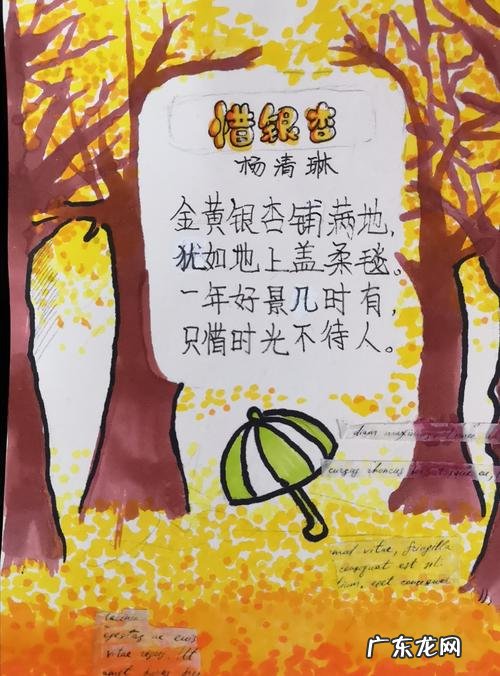 惜银杏
杨清琳
金黄银杏铺满地,
犹如地上盖柔毯。
一年好景几时有,
只惜时光不待人。
diam maximus
cursus rhoncus
mad vitae, fringilla
consequat est sit
diam, eget consequat
egestas ac quis
vitae
广东龙网